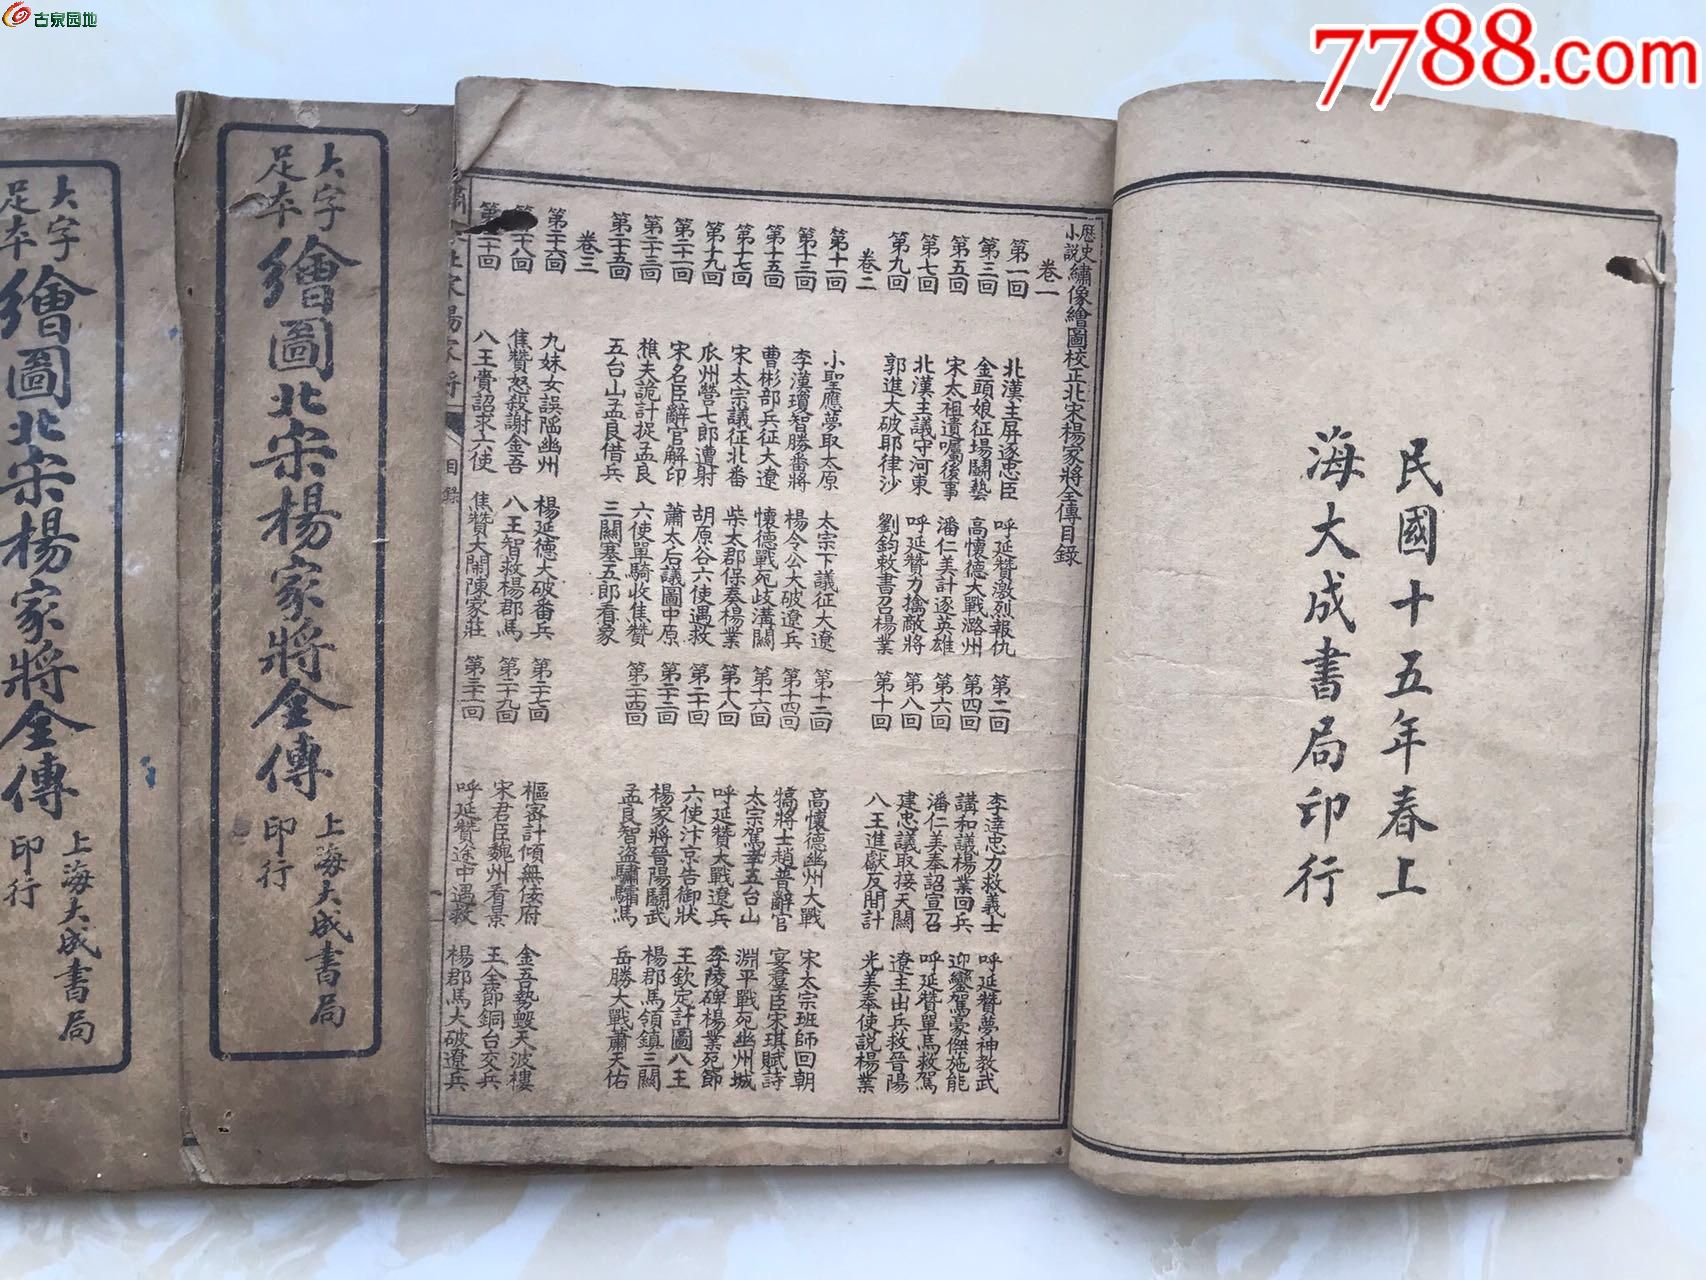 古泉园地
7788.com
民國十五年春上
海大成書局印行
歷史小說繡像繪圖校正北宋楊家將全傳目錄
卷一
第一回 北漢主屏逐忠臣 呼延贊激烈報仇 第二回 李建忠力救義士 呼延贊夢神教武
第三回 金頭娘征場鬬藝 高懷德大戰潞州 第四回 講和議楊業回兵 迎鑾駕豪傑施能
第五回 宋太祖遺囑後事 潘仁美計逐英雄 第六回 潘仁美奉詔宣召 呼延贊單馬救駕
第七回 北漢主議守河東 呼延贊力擒敵將 第八回 建忠議取接天關 遼主出兵救晉陽
第九回 郭進大破耶律沙 劉鈞敕書召楊業 第十回 八王進獻反間計 光美奉使說楊業
卷二
第十一回 小聖應夢取太原 太宗下議征大遼 第十二回 高懷德幽州大戰 宋太宗班師回朝
第十三回 李漢瓊智勝番將 楊令公大破遼兵 第十四回 犒將士趙普辭官 宴羣臣宋琪賦詩
第十五回 曹彬部兵征大遼 懷德戰死歧溝關 第十六回 太宗駕幸五台山 淵平戰死幽州城
第十七回 宋太宗議征北番 柴太郡保奏楊業 第十八回 呼延贊大戰遼兵 李陵碑楊業死節
第十九回 瓜州營七郎遭射 胡原谷六使遇救 第二十回 六使汴京告御狀 王欽定計圖八王
第二十一回 宋名臣辭官解印 蕭太后議圖中原 第二十二回 楊家將晉陽鬬武 楊郡馬領鎮三關
第二十三回 樵夫詭計捉孟良 六使單騎收焦贊 第二十四回 孟良智盜驌驦馬 岳勝大戰蕭天佑
第二十五回 五台山孟良借兵 三關寨五郎看象
卷三
第二十六回 九妹女誤陷幽州 楊延德大破番兵 第二十七回 樞密計傾無佞府 金吾勢毀天波樓
第二十八回 焦贊怒殺謝金吾 八王智救楊郡馬 第二十九回 宋君臣魏州看景 王全節銅台交兵
第三十回 八王賫詔求六使 焦贊大鬧陳家莊 第三十一回 呼延贊途中遇救 楊郡馬大破遼兵
北宋楊家將 目錄
大字足本繪圖北宋楊家將全傳
上海大成書局印行
大字足本繪圖北宋楊家將全傳
上海大成書局印行